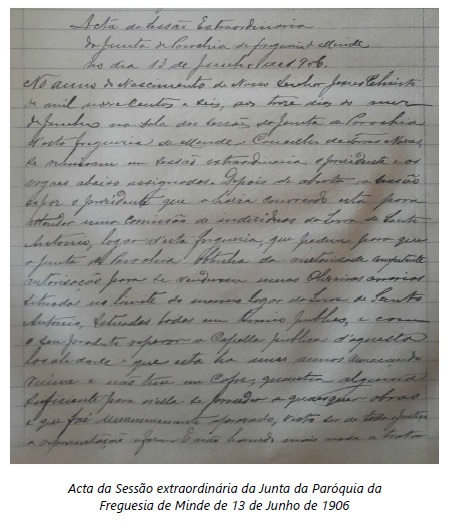 Acta da Sessão Extraordinaria
da Junta de Parochia da freguesia de Minde
no dia 13 de Junho de 1906
No anno do Nascimento de Nosso Senhor Jesus Christo
de mil nove centos e seis, aos treze dias do mez
de Junho na sala das sessões da Junta de Parochia
desta freguesia de Minde Concelho de Torres Novas,
se reuniram em sessão extraordinaria o presidente e os
vogaes abaixo assignados. Depois de aberta a sessão
expoz o presidente que a havia convocado esta para
attender uma comissão de individuos da Serra de Santo
Antonio, logar d'esta freguesia, que pedem para que
a Junta de Parochia obtenha da autoridade competente
autorisação para se venderem umas Oliveiras
situadas no limite do mesmo logar da Serra de Santo
Antonio, situadas todas em terreno publico, e com
o seu producto reparar a Capella publica d'aquella
localidade que está ha uns annos ameaçando
ruina e não tem em Cofre, quantia alguma
sufficiente para n'ella se proceder a quaesquer obras
o que foi unanimemente aprovado, visto ser de toda justiça
a representação afirma. E não havendo mais nada a tratar
Acta da Sessão extraordinária da Junta da Paróquia da
Freguesia de Minde de 13 de Junho de 1906